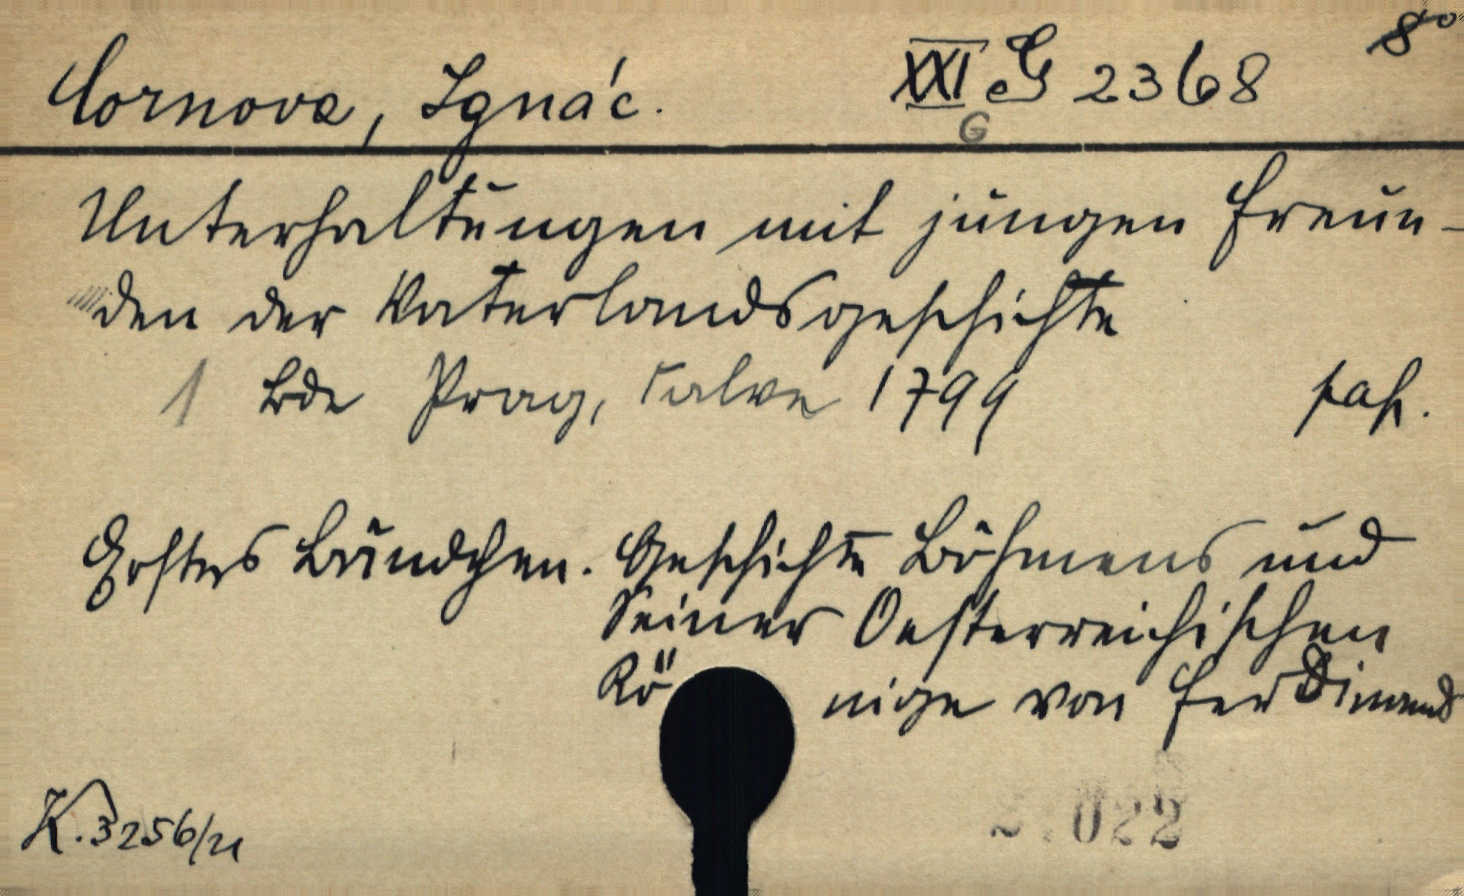 Cornova, Ignác. XXI G 2368 8°
G
Unterhaltungen mit jungen Freun-
den der Vaterlandsgeschichte
1 Bde Prag, Calve 1799
Erstes Bändchen. Geschichte Böhmens und
seiner Oesterreichischen
Kö nige von Ferdinand
K. 3256/21
022